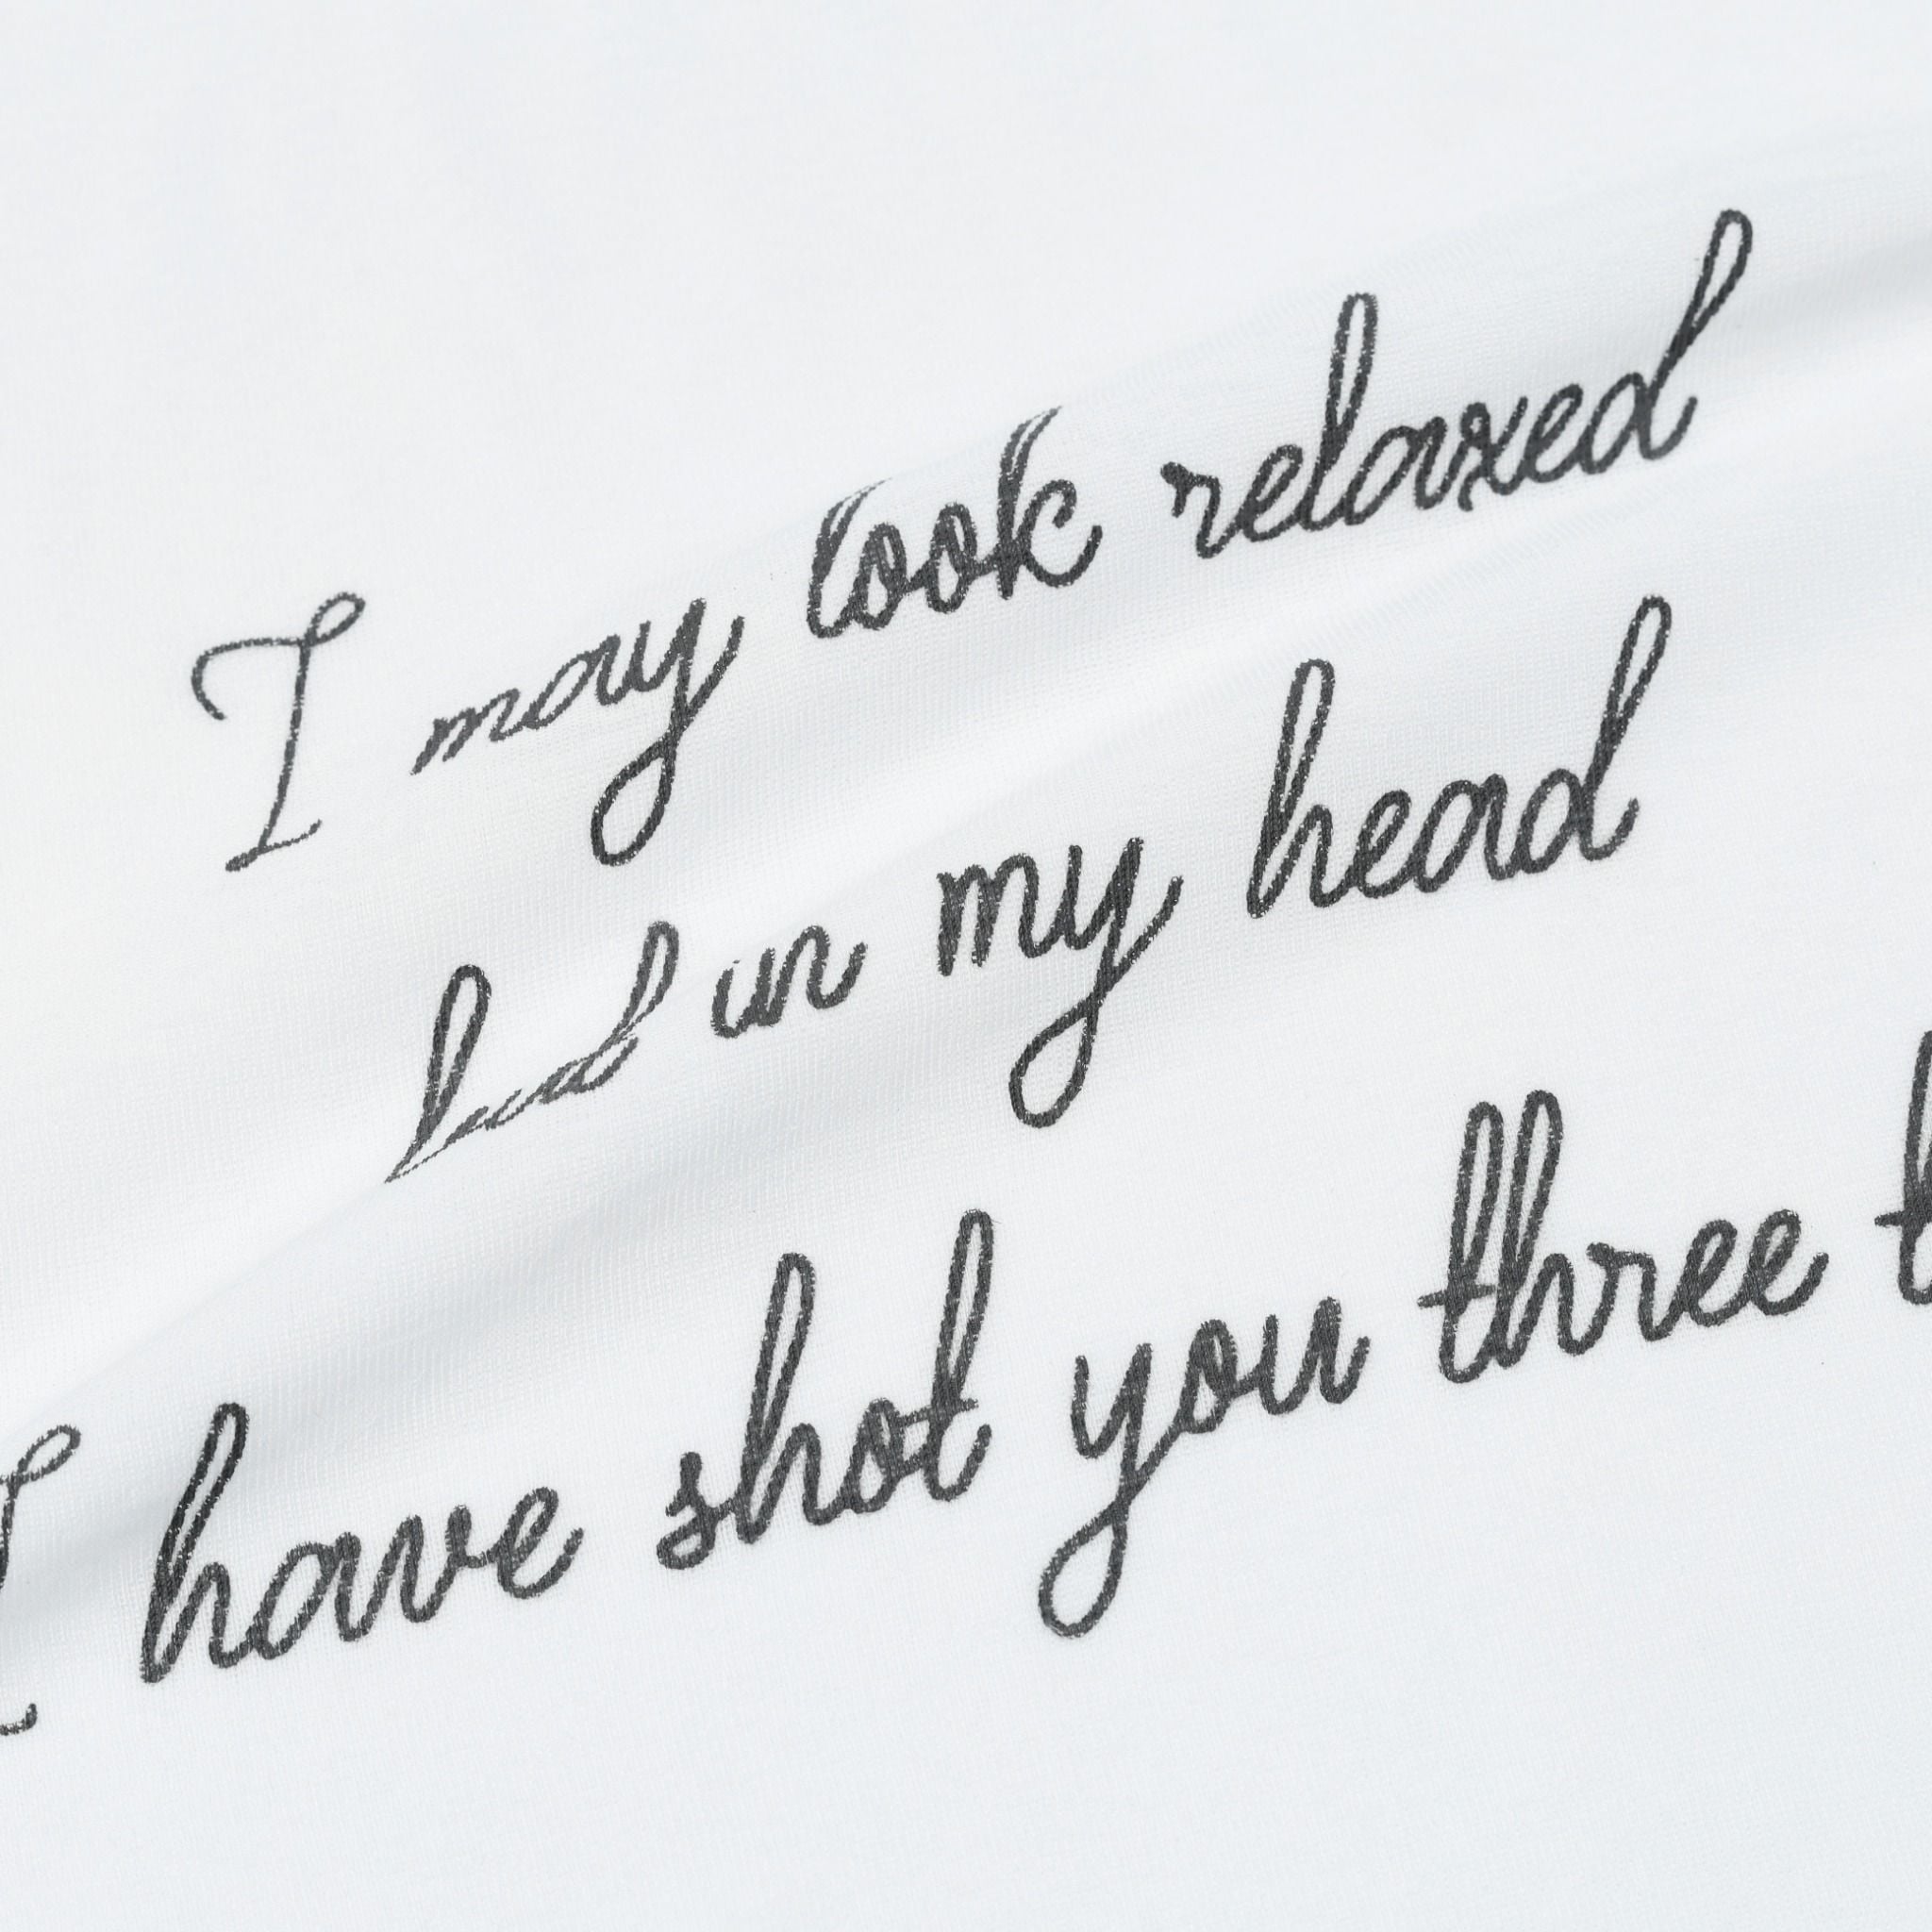 I may look relaxed
but in my head
I have shot you three t